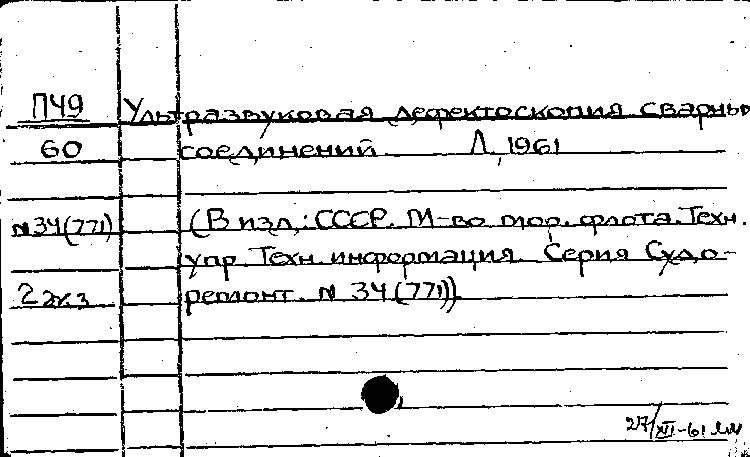 П49
Ультразвуковая дефектоскопия сварных
60
соединений Л, 1961
N34(771)
(В изд.: СССР. М-во мор. флота. Техн.
упр. Техн. информация. Серия Судо-
2 экз
ремонт. N 34(771))
27/XII-61